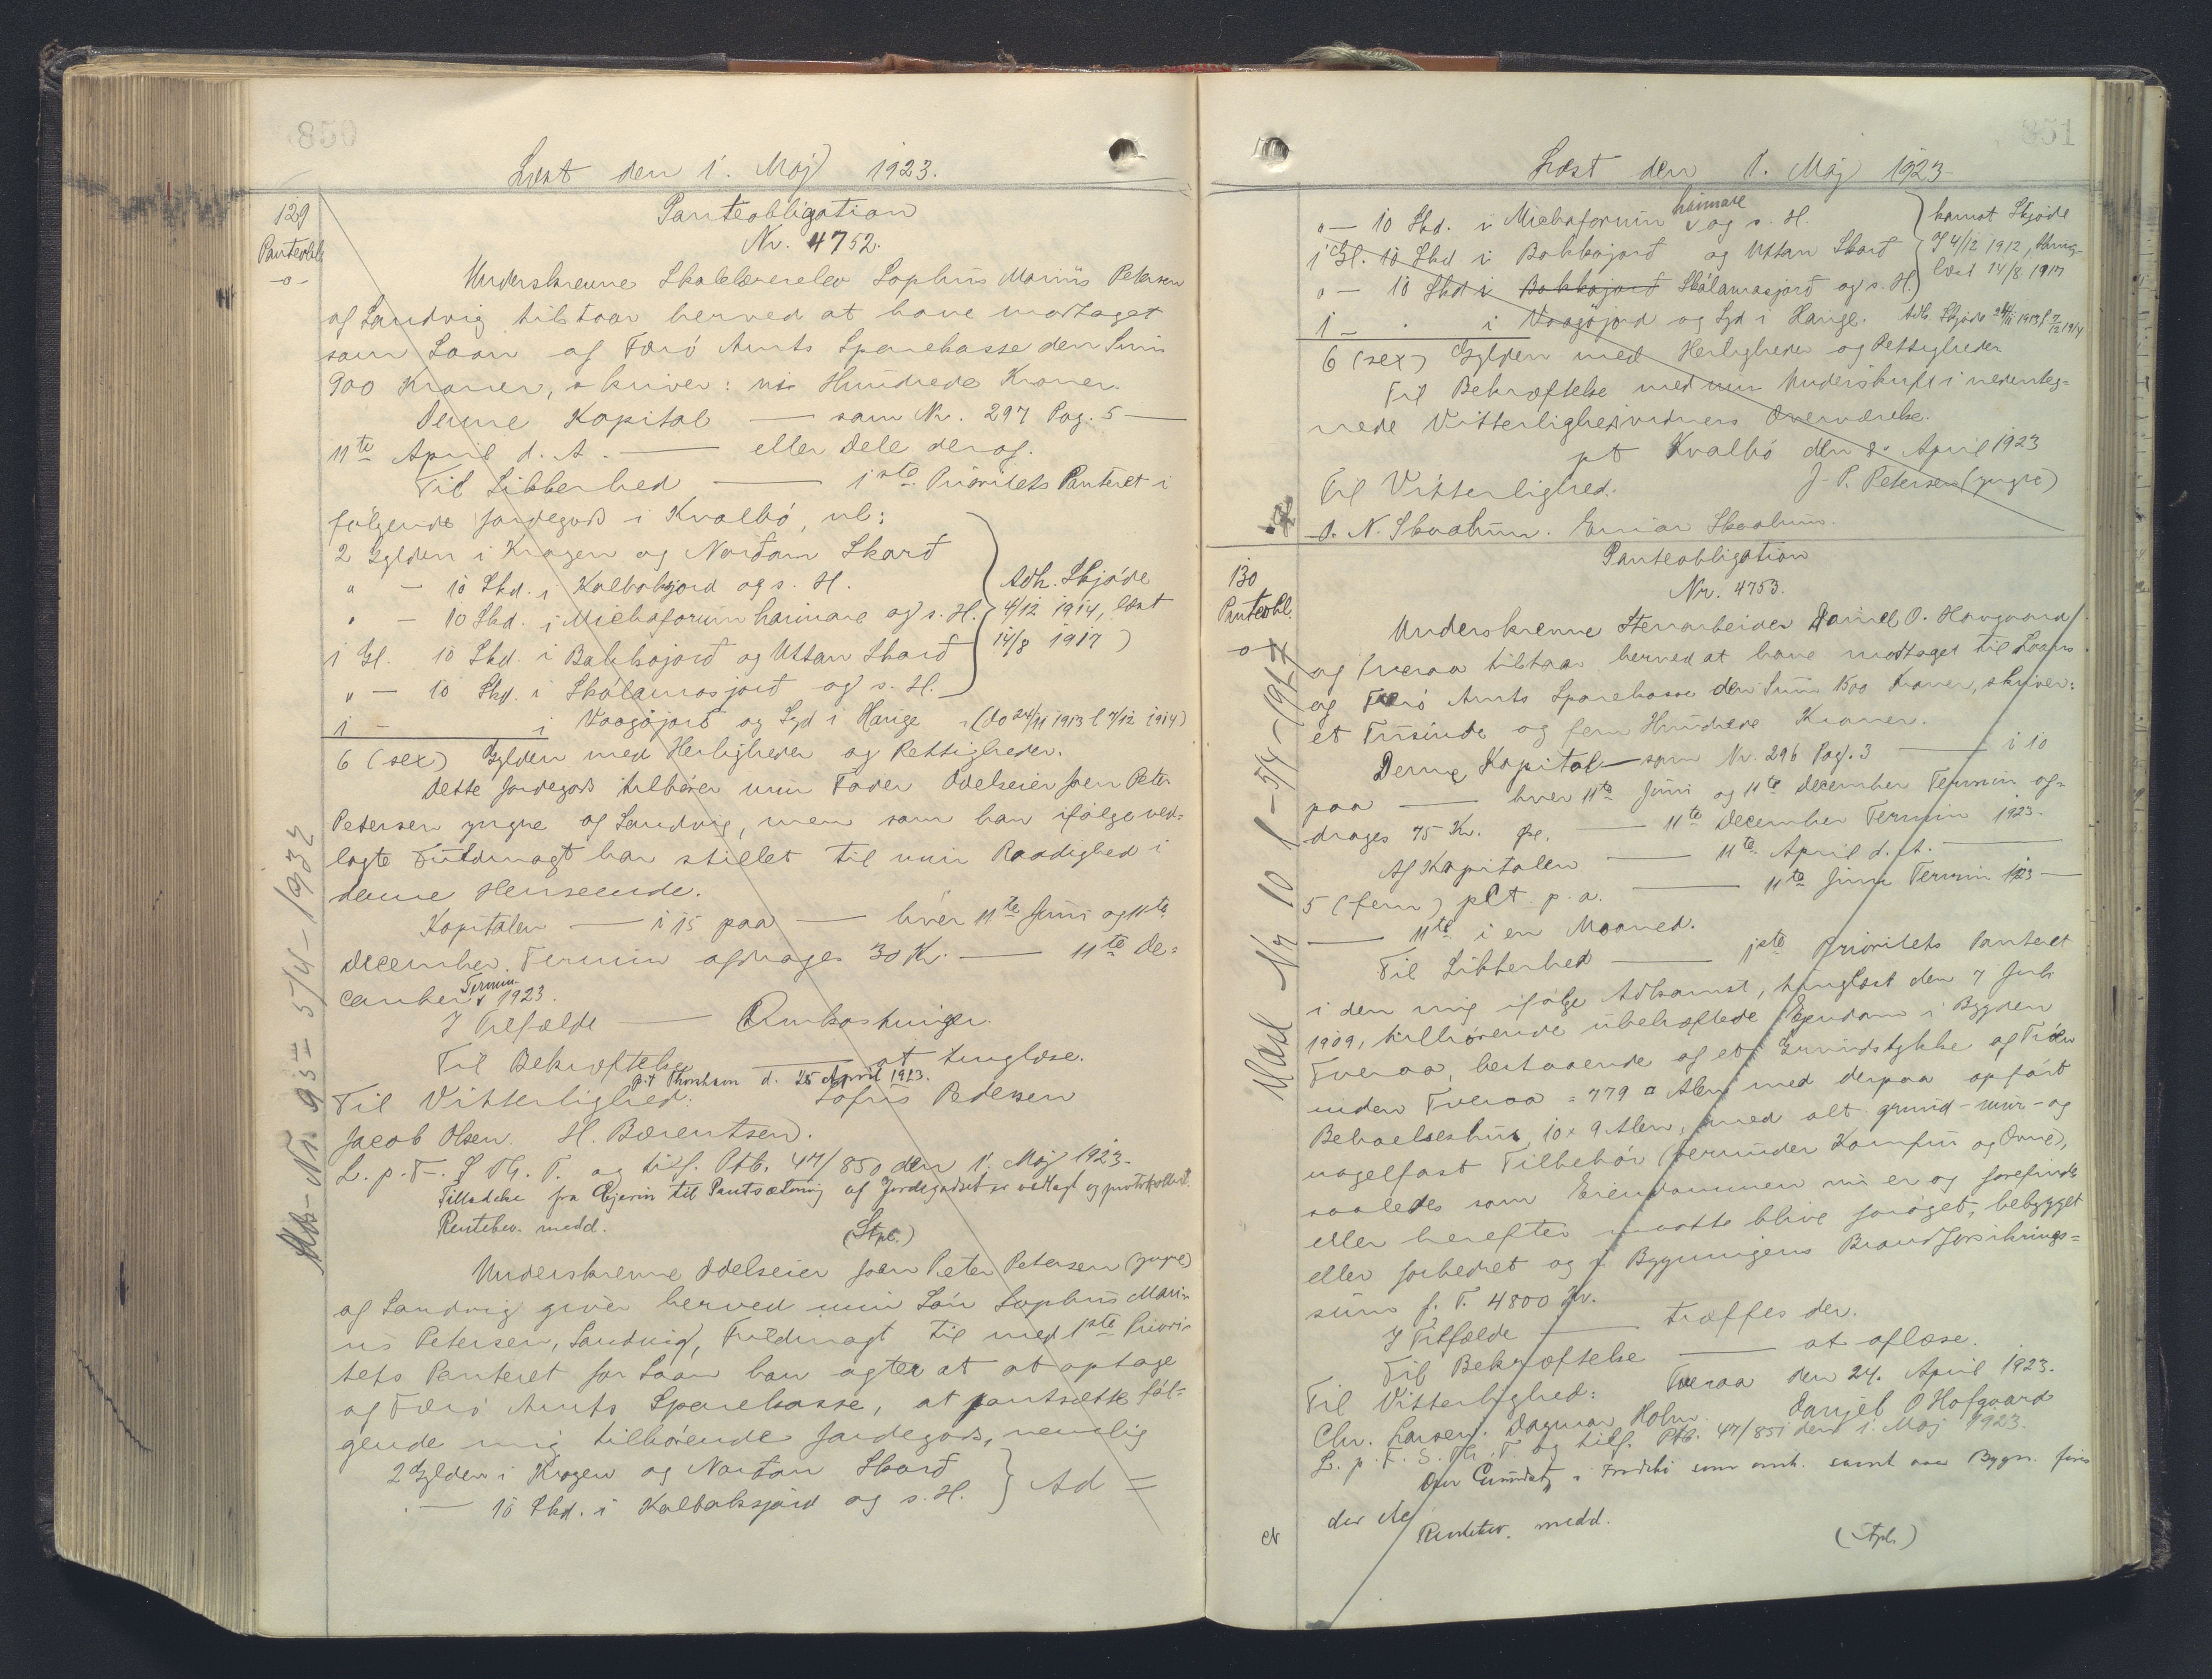 850
Læst den 1. Maj 1923.
129
Panteobl.
-o-
Panteobligation
Nr. 4752.
Underskrevne Skolelærerelev Sophus Marius Petersen
af Sandvig tilstaar herved at have modtaget
som Laan af Færö Amts Sparekasse den Sum
900 Kroner, skriver: ni Hundrede Kroner.
Denne Kapital — som Nr. 297 Pag. 5 —
11te April d. A. — eller Dele deraf.
Til Sikkerhed — 1ste Prioritets Panteret i
følgende Jordegods i Kvalbö, nl:
2 Gylden i Krogen og Norðan Skarð
" — 10 Skd. i Kalbaksjord og s. H.
" — 10 Skd. i Miðaforum heimare og s. H.
1 Gl. 10 Skd. i Bakkajorð og Uttan Skarð
" — 10 Skd. i Skálamasjorð og s. H.
Adk. Skjöde
4/12 1914, læst
14/8 1917)
1 — i Vaagöjorð og Syd i Hauge (do 24/11 1913 l 7/12 1914)
6 (sex) Gylden med Herligheder og Rettigheder.
Dette Jordegods tilhører min Fader Odelseier Joen Peter
Petersen yngre af Sandvig, men som han ifølge ved-
lagte Fuldmagt har stillet til min Raadighed i
denne Henseende.
Kapitalen — i 15 paa — hver 11te Juni og 11te
December Termin afdrages 30 Kr. — 11te De-
cember Termin 1923.
I Tilfælde — Omkostninger.
Til Bekræftelse — at tinglæse.
p.t Thorshavn d. 25 April 1923.
Til Vitterlighed: Sofus Petersen
Jacob Olsen. H. Bærentsen.
L. p. F. S Th. T. og tilf. Ptb. 47/850 den 1. Maj 1923.
Tilladelse fra Ejeren til Pantsætning af Jordegodset er vedlagt og protokolleret.
Rentebev. medd.
(Stpl.)
Underskrevne Odelseier Joen Peter Petersen (yngre)
af Sandvig giver herved min Sön Sophus Mari-
us Petersen, Sandvig, Fuldmagt til med 1ste Priori-
tets Panteret for Laan han agter at at optage
af Færö Amts Sparekasse, at pantsætte föl-
gende mig tilhörende Jordegods, nemlig
2 Gylden i Krogen og Norðan Skarð
" — 10 Skd. i Kalbaksjord og s. H. } Ad =
Nr. 9 5/4-1932
851
Læst den 1. Maj 1923
" — 10 Skd. i Miðaforum heimare og s. H.
1 Gl. 10 Skd. i Bakkajorð og Uttan Skarð
" — 10 Skd i Bakkajorð Skálamasjorð og s. H.
komst Skjöde
4/12 1912, thing-
læst 14/8 1917
1 — " i Vaagöjord og Syd i Hauge. Adk. Skjöde 24/11 1913 l 7/12 1914
6 (sex) Gylden med Herligheder og Rettigheder
Til Bekræftelse med min Underskrift i nedenteg-
nede Vitterlighedsvidners Overværelse.
pt Kvalbö den 20 April 1923
J. P. Petersen (yngre)
Til Vitterlighed.
O. N. Skaalum. Einar Skaalum.
130
Panteobl.
-o-
Panteobligation
Nr. 4753.
Underskrevne Stenarbeider Daniel O. Hovgaard
af Tveraa tilstaar herved at have modtaget til Laans
af Færö Amts Sparekasse den Sum 1500 Kroner, skriver:
et Tusinde og fem Hundrede Kroner.
Denne Kapital — som Nr. 296 Pag. 3 — i 10
paa — hver 11te Juni og 11te December Termin af-
drages 75 Kr. Øre. — 11te December Termin 1923.
Af Kapitalen — 11te April d. A. —
5 (fem) pCt. p. a. — 11te Juni Termin 1923 —
— 11te i en Maaned.
Til Sikkerhed — 1ste Prioritets Panteret
i den mig ifölge Adkomst, tinglæst den 7 Juli
1909, tilhörende ubehæftede Ejendom i Bygden
Tveraa, bestaaende af et Grundstykke af Tröen
under Tveraa = 779 □ Alen med derpaa opfört
Beboelseshus, 10 x 9 Alen, med alt grund- mur- og
nagelfast Tilbehör (herunder Komfur og Ovne),
saaledes som Eiendommen nu er og forefindes
eller herefter maatte blive foröget, bebygget
eller forbedret og i Bygningens Brandforsikrings-
sum f. T. 4800 Kr.
I Tilfælde — træffes der.
Til Bekræftelse — at aflæse.
Tveraa den 24. April 1923.
Til Vitterlighed: Danjel O Hofgaard
Chr. Larsen. Dagmar Holm.
L. p. F. S. Th. T. og tilf. Ptb. 47/851 den 1. Maj 1923.
Rentebev. medd.
(Stpl.)
Nr 10 5/7-1917